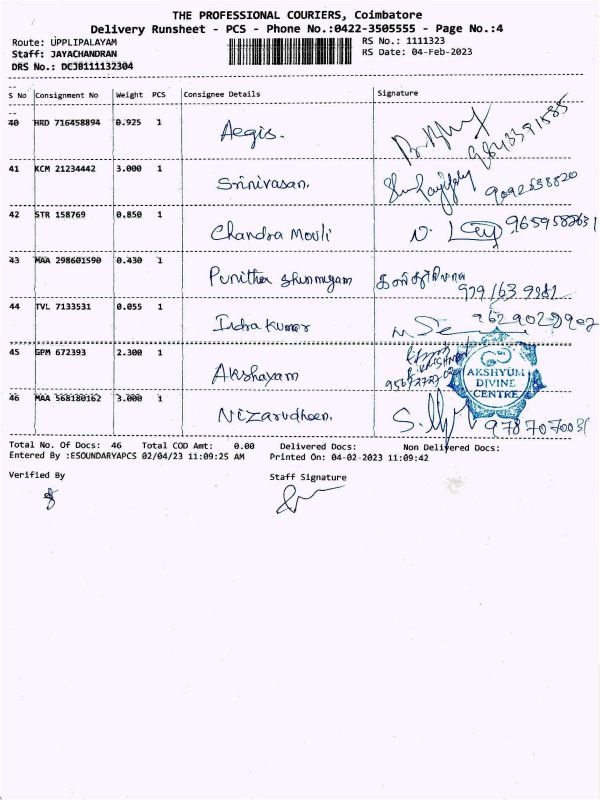 THE PROFESSIONAL COURIERS, Coimbatore
Delivery Runsheet - PCS - Phone No.:0422-3505555 - Page No.:4
Route: UPPLIPALAYAM RS No.: 1111323
Staff: JAYACHANDRAN RS Date: 04-Feb-2023
DRS No.: DCJB111132304
S No Consignment No Weight PCS Consignee Details Signature
40 HRD 716458894 0.925 1 Aegis. 9843391585
41 KCM 21234442 3.000 1 Srinivasan. 9092538820
42 STR 158769 0.850 1 Chandra Mouli
43 MAA 298601590 0.430 1 Punitha Shunmugam
44 TVL 7133531 0.055 1 Indra kumar
45 GPM 672393 2.300 1 Akshayam
AKSHYUM
DIVINE
CENTRE
46 MAA 568180162 3.000 1 Nizarudheen.
Total No. Of Docs: 46 Total COD Amt: 0.00 Delivered Docs: Non Delivered Docs:
Entered By :ESOUNDARYAPCS 02/04/23 11:09:25 AM Printed On: 04-02-2023 11:09:42
Verified By Staff Signature